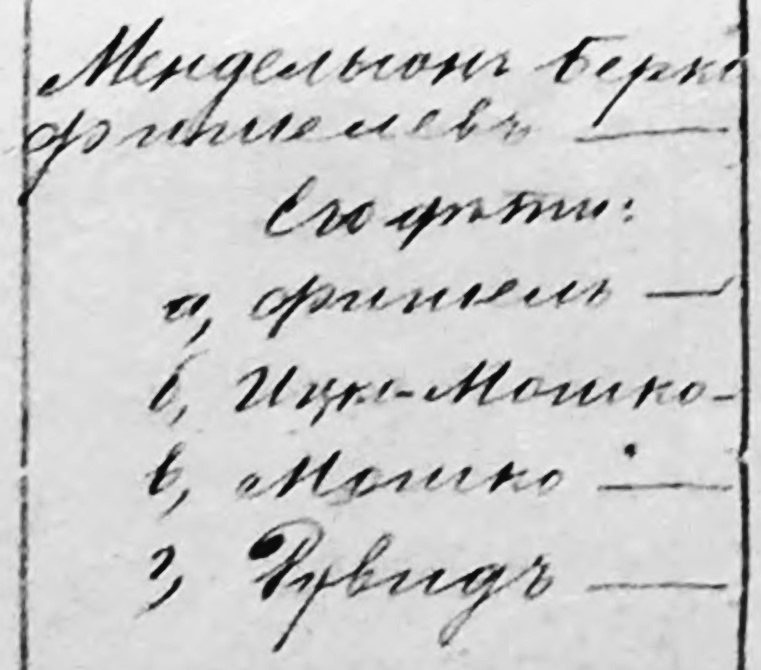 Мендельсонъ Берко
Фишелевъ —
Его дѣти:
а, Фишель —
б, Ицко-Мошко-
в, Мошко —
г, Рувидъ —